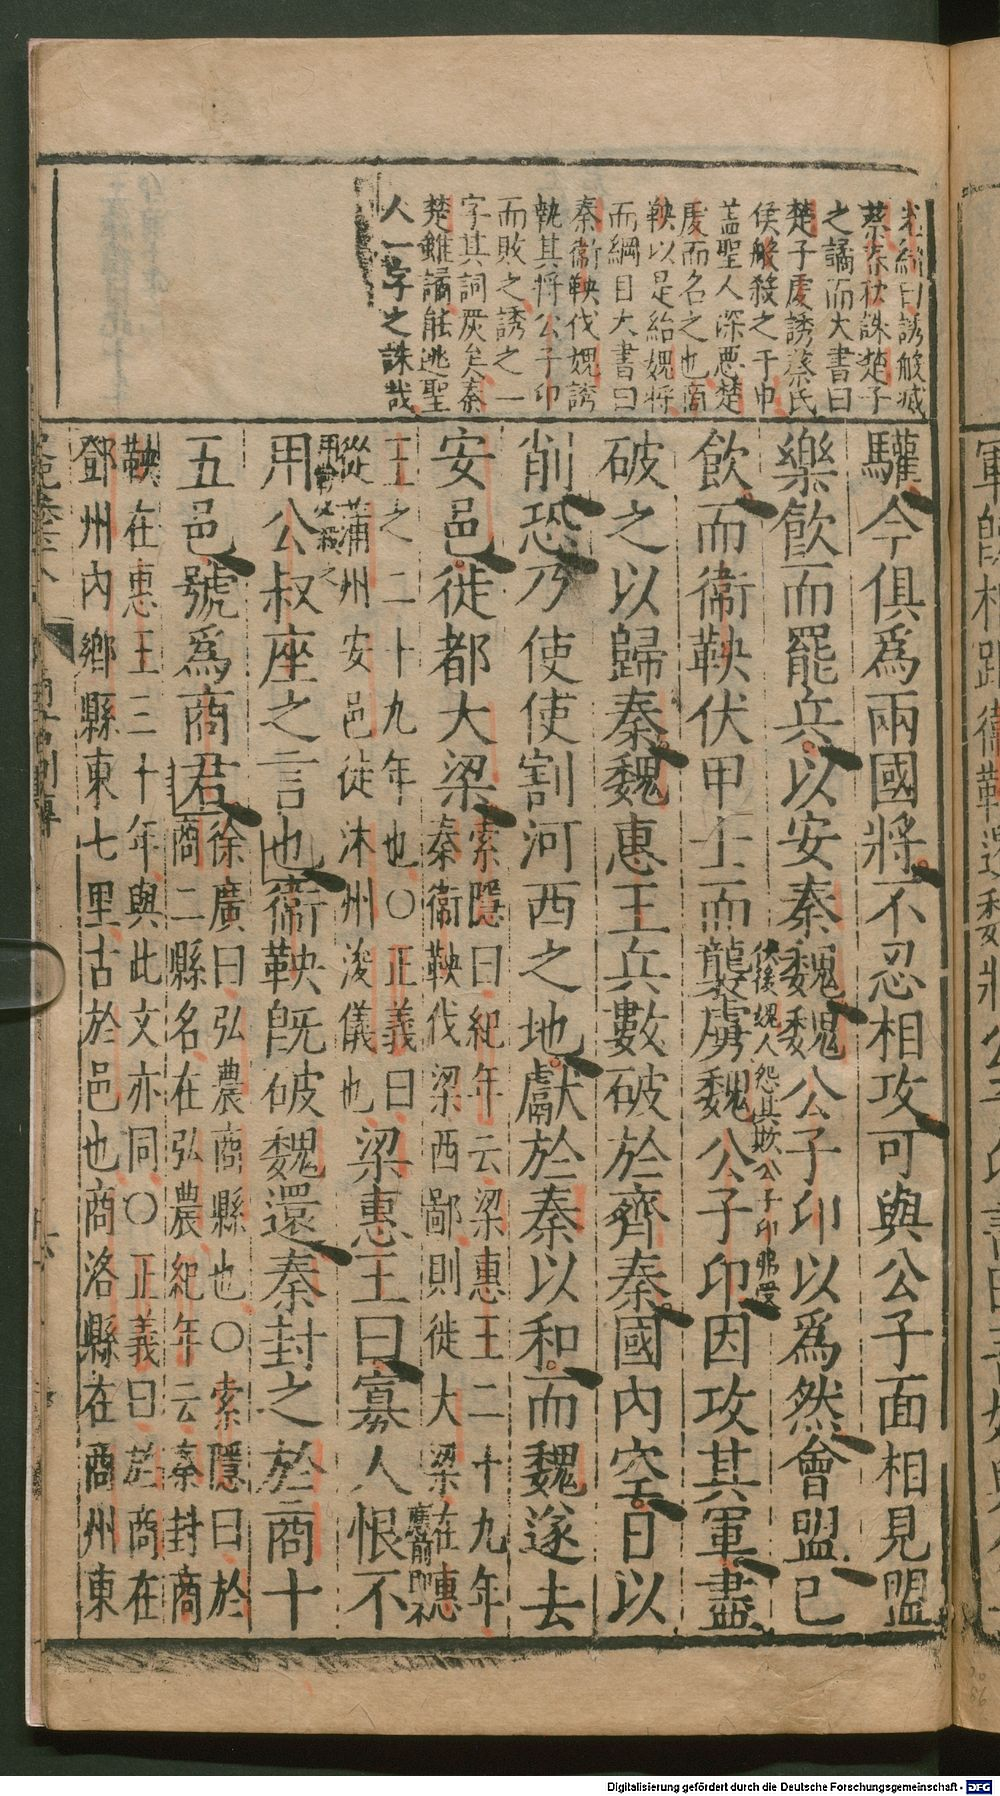 光縉曰誘般滅
蔡春秋誅楚子
之譎而大書曰
楚子虔誘蔡氏
侯般殺之于申
葢聖人深惡楚
虔而名之也商
鞅以是紿魏將
而綱目大書曰
秦衞鞅伐魏誘
執其將公子卬
而敗之誘之一
字其詞嚴矣秦
楚雖譎能逃聖
人一字之誅哉
驩今俱爲兩國將不忍相攻可與公子面相見盟
樂飮而罷兵以安秦魏魏公子卬以爲然會盟已
飮而衞鞅伏甲士而襲虜魏公子卬因攻其軍盡
伏後魏人怨其欺公子卬弗受
破之以歸秦魏惠王兵數破於齊秦國內空日以
削恐乃使使割河西之地獻於秦以和而魏遂去
安邑徙都大梁
索隱曰紀年云梁惠王二十九年
秦衞鞅伐梁西鄙則徙大梁在惠
王之二十九年也〇正義曰
從蒲州安邑徙汴州浚儀也
梁惠王曰寡人恨不
應前即不
用當必殺之
用公叔座之言也衞鞅旣破魏還秦封之於商十
五邑號爲商君
徐廣曰弘農商縣也〇索隱曰於
商二縣名在弘農紀年云秦封商
鞅在惠王三十年與此文亦同〇正義曰於商在
鄧州內鄉縣東七里古於邑也商洛縣在商州東
Digitalisierung gefördert durch die Deutsche Forschungsgemeinschaft - DFG